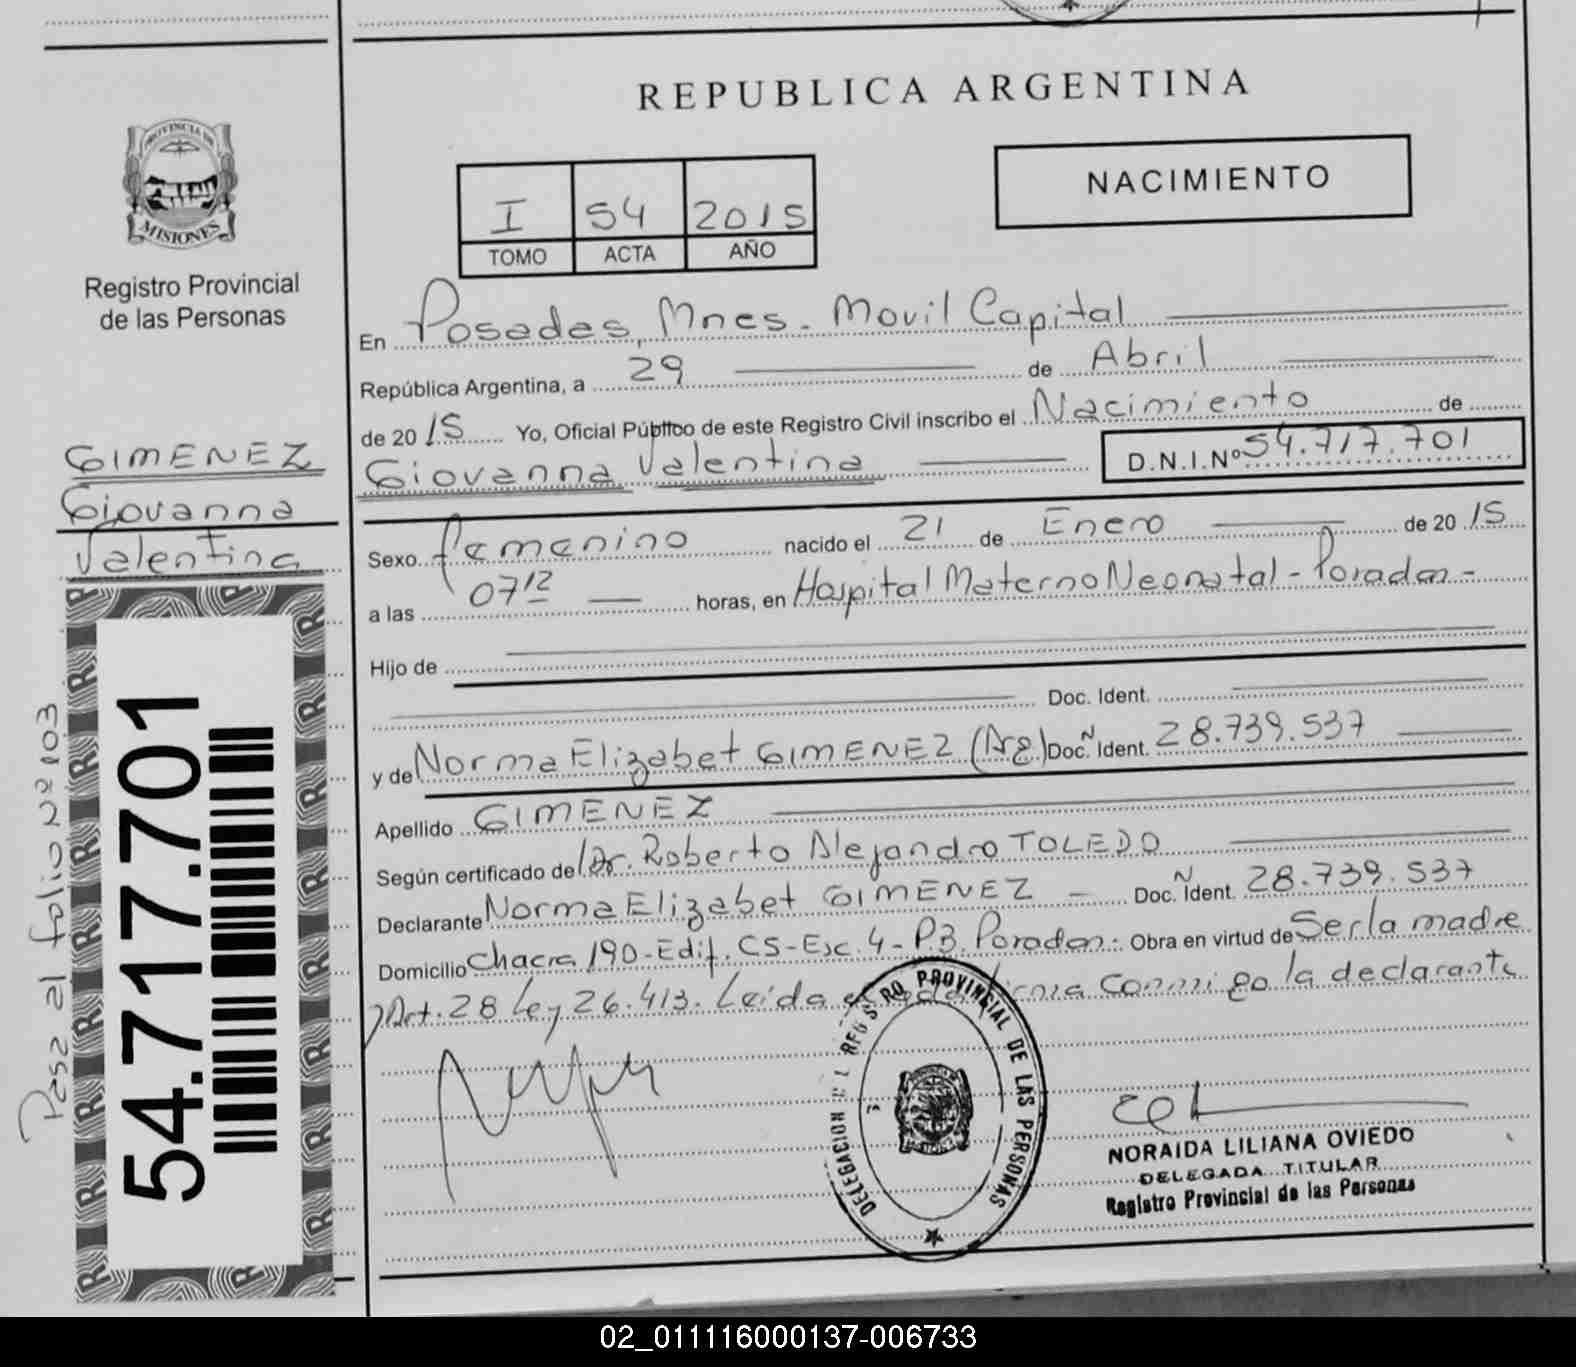 REPUBLICA ARGENTINA
PROVINCIA DE
MISIONES
Registro Provincial
de las Personas
NACIMIENTO
I 54 2015
TOMO ACTA AÑO
En Posadas, Mnes. Movil Capital
República Argentina, a 29 de Abril
de 20 15 Yo, Oficial Público de este Registro Civil inscribo el Nacimiento de
Giovanna Valentina D.N.I.Nº 54.717.701
GIMENEZ
Giovanna
Valentina
Sexo femenino nacido el 21 de Enero de 20 15
a las 07 12 horas, en Hospital Materno Neonatal - Posadas -
Hijo de
Doc. Ident.
y de Norma Elizabet GIMENEZ (Arg.) Doc. Ident. 28.739.537
Apellido GIMENEZ
Según certificado de Dr. Roberto Alejandro TOLEDO
Declarante Norma Elizabet GIMENEZ Doc. Ident. 28.739.537
Domicilio Chacra 190-Edif. CS-Esc. 4-P.B. Posadas. Obra en virtud de Ser la madre
Art. 28 Ley 26.413. Leída conmigo la declarante
Pasa al folio Nº 103
54.717.701
DELEGACION REGISTRO PROVINCIAL DE LAS PERSONAS
NORAIDA LILIANA OVIEDO
DELEGADA TITULAR
Registro Provincial de las Personas
02_011116000137-006733